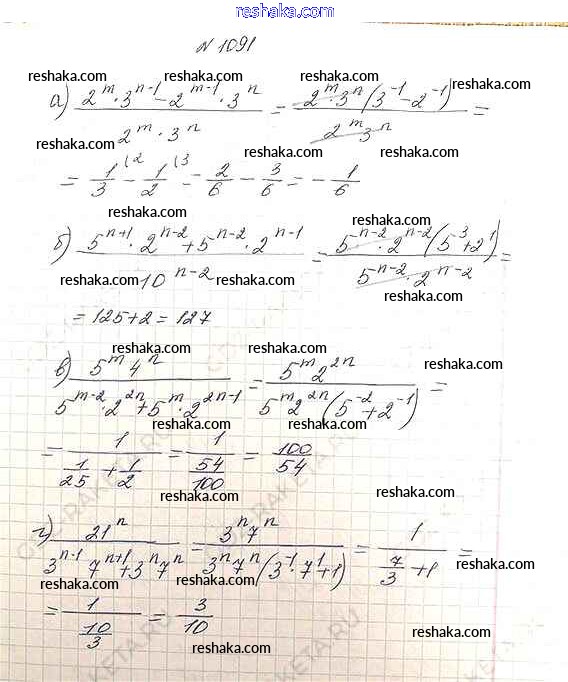 reshaka.com
№ 1091
reshaka.com reshaka.com reshaka.com
а) (2^m · 3^(n-1) - 2^(m-1) · 3^n)/(2^m · 3^n) = (2^m · 3^n (3^(-1) - 2^(-1)))/(2^m 3^n) =
reshaka.com reshaka.com
reshaka.com reshaka.com
= 1/3 (2 - 1/2 (3 = 2/6 - 3/6 = - 1/6
reshaka.com reshaka.com
reshaka.com
reshaka.com reshaka.com
б) (5^(n+1) · 2^(n-2) + 5^(n-2) · 2^(n-1))/(10^(n-2)) = (5^(n-2) · 2^(n-2) (5^3 + 2^1))/(5^(n-2) · 2^(n-2)) =
reshaka.com reshaka.com
reshaka.com
= 125 + 2 = 127
reshaka.com reshaka.com
reshaka.com
в) (5^m 4^n)/(5^(m-2) · 2^(2n) + 5^m · 2^(2n-1)) = (5^m 2^(2n))/(5^m 2^(2n) (5^(-2) + 2^(-1))) =
reshaka.com reshaka.com
reshaka.com
= 1/(1/25 + 1/2) = 1/(54/100) = 100/54
reshaka.com
reshaka.com
reshaka.com reshaka.com
г) 21^n/(3^(n-1) 7^(n+1) + 3^n 7^n) = (3^n 7^n)/(3^n 7^n (3^(-1) · 7^1 + 1)) = 1/(7/3 + 1) =
reshaka.com
reshaka.com reshaka.com
= 1/(10/3) = 3/10
reshaka.com
reshaka.com
reshaka.com